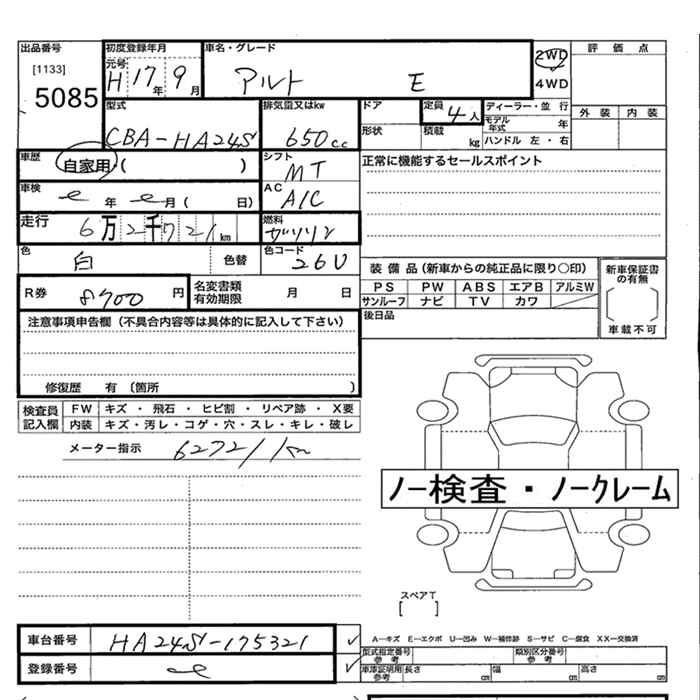 出品番号 初度登録年月 車名・グレード 2WD 評価点
[1133] 元号 H 17年 9月 アルト E 4WD
5085 型式 排気量又はkw ドア 定員 4人 ディーラー・並行 外装 内装
CBA-HA24S 650cc 形状 積載 kg モデル年式 年
ハンドル 左・右
車歴 自家用( ) シフト MT 正常に機能するセールスポイント
車検 年 月( 日) AC A/C
走行 6万2千721km 燃料 ガソリン
色 白 色替 色コード 26U
装備品(新車からの純正品に限り○印) 新車保証書の有無
R券 8700円 名変書類有効期限 月 日 PS PW ABS エアB アルミW
サンルーフ ナビ TV カワ
車載不可
注意事項申告欄(不具合内容等は具体的に記入して下さい) 後日品
修復歴 有(箇所 )
検査員記入欄 FW キズ・飛石・ヒビ割・リペア跡・X要
内装 キズ・汚レ・コゲ・穴・スレ・キレ・破レ
メーター指示 62721km
ノー検査・ノークレーム
スペアT
[ ]
車台番号 HA24S-175321 A―キズ E―エクボ U―凹み W―補修跡 S―サビ C―腐食 XX―交換済
型式指定番号 参考 類別区分番号 参考
登録番号 車庫証明用 参考 長さ cm 幅 cm 高さ cm